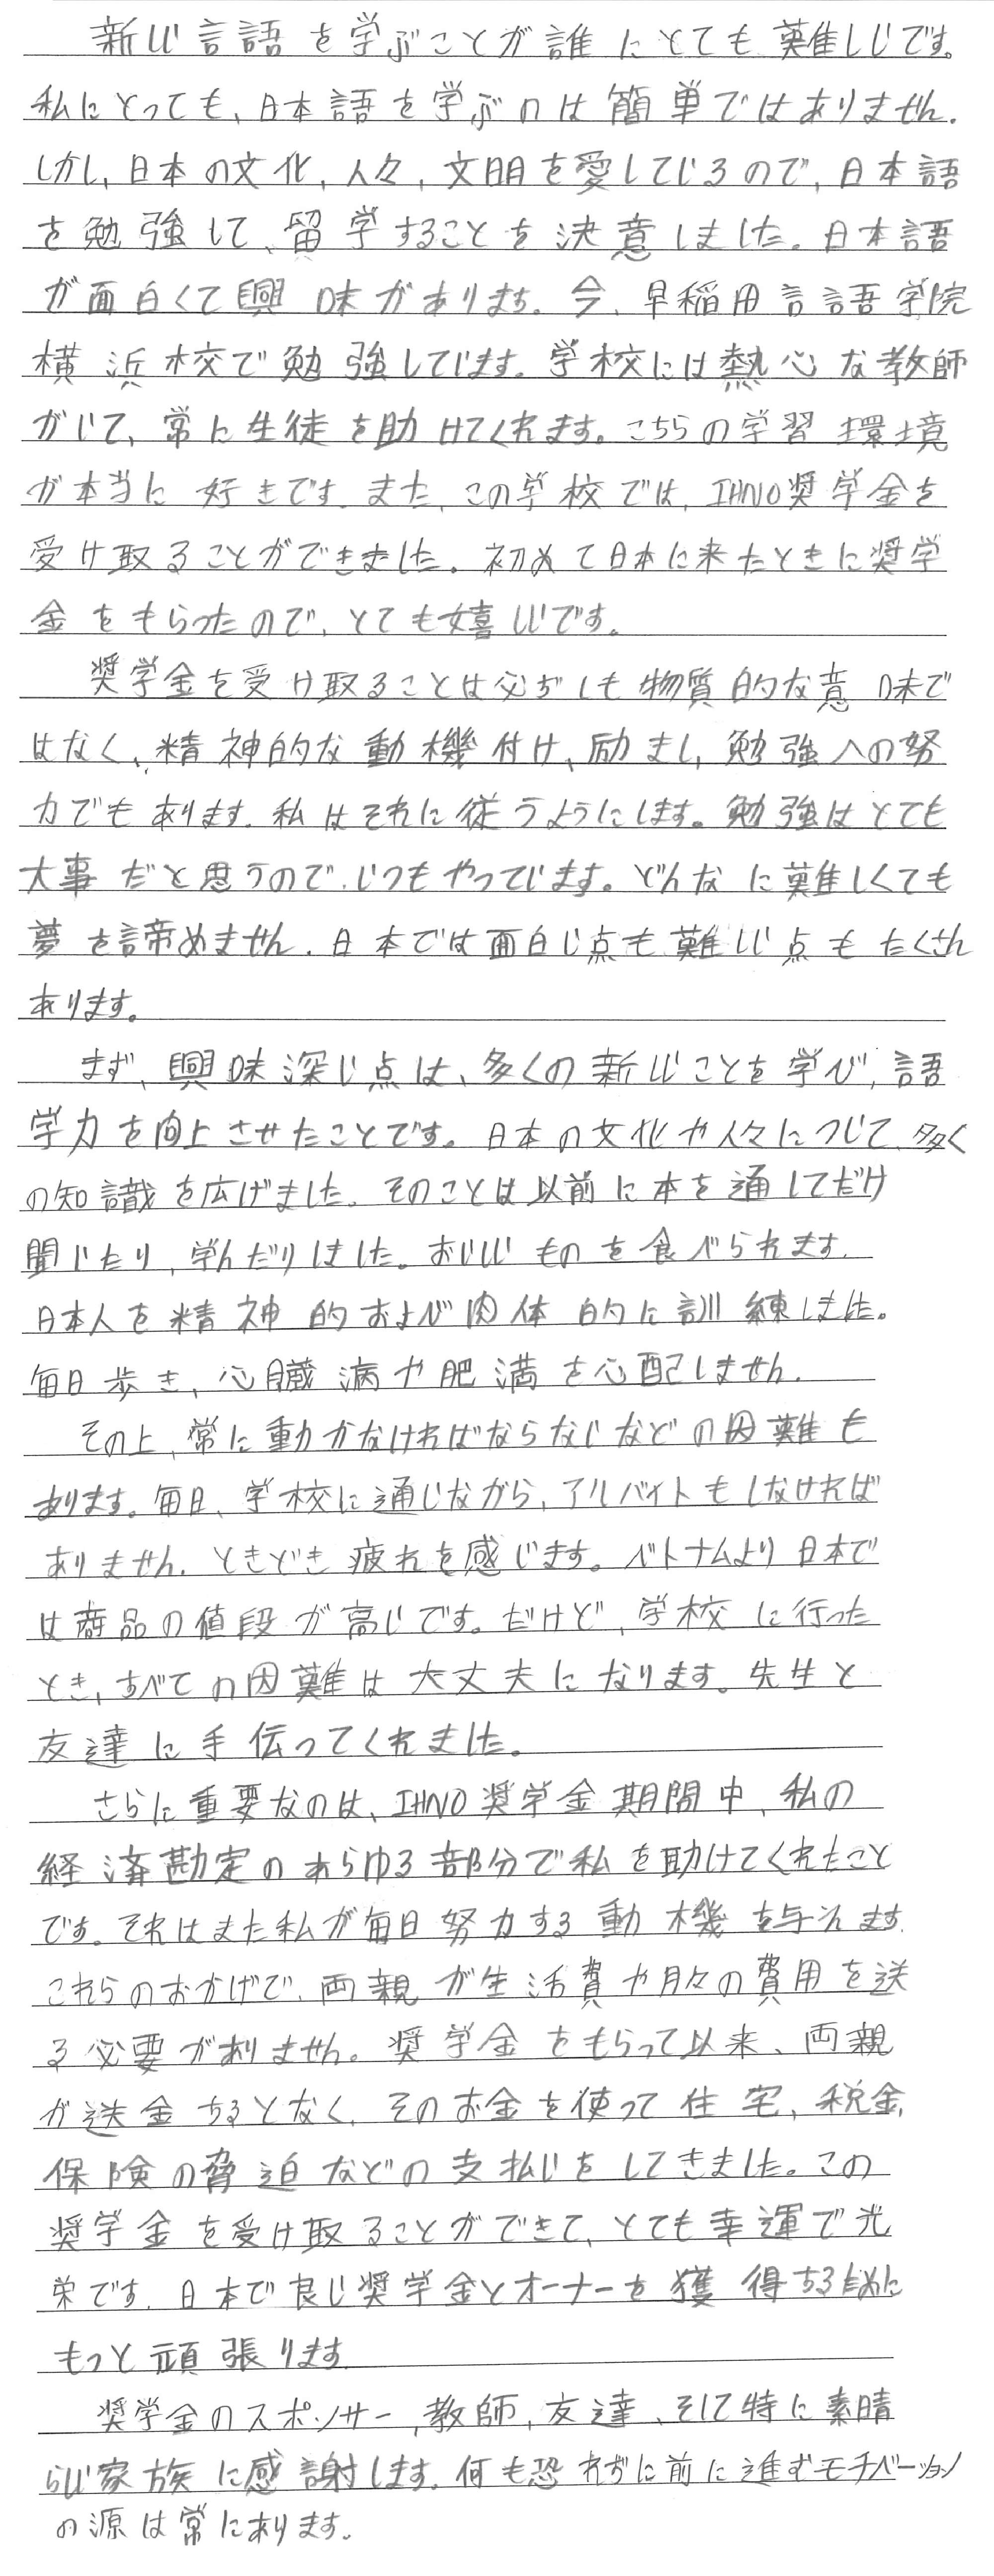 新しい言語を学ぶことが誰にとても難しいです。
私にとっても、日本語を学ぶのは簡単ではありません。
しかし、日本の文化、人々、文明を愛しているので、日本語
を勉強して、留学することを決意しました。日本語
が面白くて興味があります。今、早稲田言語学院
横浜校で勉強しています。学校には熱心な教師
がいて、常に生徒を助けてくれます。こちらの学習環境
が本当に好きです。また、この学校では、IHNO奨学金を
受け取ることができました。初めて日本に来たときに奨学
金をもらったので、とても嬉しいです。
奨学金を受け取ることは必ずしも物質的な意味で
はなく、精神的な動機付け、励まし、勉強への努
力でもあります。私はそれに従うようにします。勉強はとても
大事だと思うので、いつもやっています。どんなに難しくても
夢を諦めません。日本では面白い点も難しい点もたくさん
あります。
まず、興味深い点は、多くの新しいことを学び、語
学力を向上させたことです。日本の文化や人々について、多く
の知識を広げました。そのことは以前に本を通してだけ
聞いたり、学んだりしました。おいしいものを食べられます。
日本人を精神的および肉体的に訓練しました。
毎日歩き、心臓病や肥満を心配しません。
その上、常に動かなければならないなどの困難も
あります。毎日、学校に通いながら、アルバイトもしなければ
ありません。ときどき疲れを感じます。ベトナムより日本で
は商品の値段が高いです。だけど、学校に行った
とき、すべての困難は大丈夫になります。先生と
友達に手伝ってくれました。
さらに重要なのは、IHNO奨学金期間中、私の
経済勘定のあらゆる部分で私を助けてくれたこと
です。それはまた私が毎日努力する動機を与えます。
これらのおかげで、両親が生活費や月々の費用を送
る必要がありません。奨学金をもらって以来、両親
が送金するとなく、そのお金を使って住宅、税金、
保険の脅迫などの支払いをしてきました。この
奨学金を受け取ることができて、とても幸運で光
栄です。日本で良い奨学金とオーナーを獲得するために
もっと頑張ります。
奨学金のスポンサー、教師、友達、そして特に素晴
らしい家族に感謝します。何も恐れずに前に進むモチベーション
の源は常にあります。